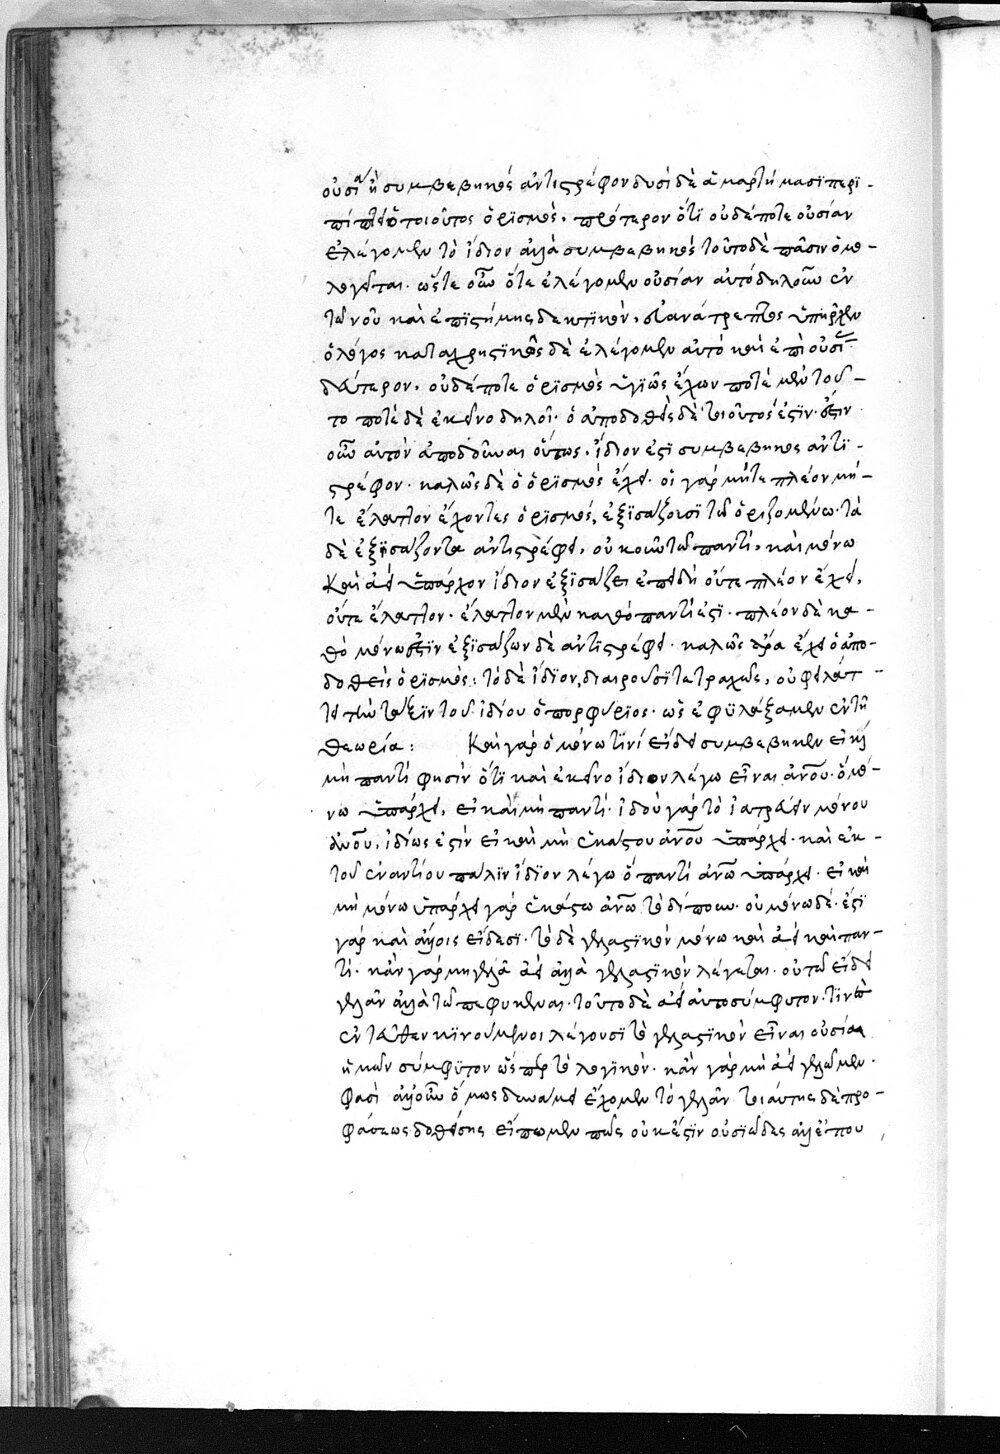 οὐσία ἢ συμβεβηκός ἀντιστρέφον δυσὶ δὲ ἁμαρτήμασϊ περι-
πίπτει ὁ τοιοῦτος ὁρϊσμός, πρότερον ὅτϊ οὐδέποτε οὐσίαν
ἐλέγομεν τὸ ἴδιον ἀλλὰ συμβεβηκός τοῦτο δὲ πᾶσιν ὁμο-
λογεῖται. ὥστε οὖν ὅτε ἐλέγομεν οὐσίαν αὐτὸ δηλοῦν ἐν
τῶ νοῦ καὶ ἐπϊστήμης δεκτϊκόν, ἀνάτρεπτος ὑπῆρχεν
ὁ λόγος καταχρηστϊκῶς δὲ ἐλέγομεν αὐτό καὶ ἐπὶ οὐσί
δεύτερον, οὐδέποτε ὁρϊσμὸς ὑγϊῶς ἔχων ποτὲ μὲν τοῦ-
το ποτὲ δὲ ἐκεῖνο δηλοῖ· ὁ ἀποδοθεὶς δὲ τοιοῦτός ἐστϊν·
οὖν αὐτὸν ἀποδοῦναι οὕτως, ἴδιον ἐστϊ συμβεβηκος ἀντϊ-
στρέφον· καλῶς δὲ ὁ ὁρϊσμός ἔχει· οἱ γάρ μήτε πλέον μή-
τε ἔλαττον ἔχοντες ὁρϊσμοὶ, ἐξϊσάζουσϊ τῶ ὁριζομένω· τὰ
δὲ ἐξϊσάζοντα ἀντιστρέφει, οὐκοῦν τῶ παντί, καὶ μόνω
καὶ ἀεὶ ὑπάρχον ἴδιον ἐξϊσάζει ἐπειδὴ οὔτε πλέον ἔχει,
οὔτε ἔλαττον· ἔλαττον μὲν καθὸ παντί ἐστϊ· πλέον δὲ κα-
θὸ μόνω ἐστϊν ἐξϊσάζων δὲ ἀντιστρέφει· καλῶς ἄρα ἔχει ὁ ἀπο-
δοθεὶς ὁρϊσμός: τὸ δὲ ἴδϊον, διαιροῦσϊ τετραχῶς, οὐ φυλάτ-
τει τὴν τάξϊν τοῦ ἰδίου ὁ πορφύρϊος· ὡς ἐφϋλάξαμεν ἐν τῆ
θεωρία: Καὶ γὰρ ὁ μόνω τϊνί εἴδει συμβέβηκεν εἰ καὶ
μὴ παντὶ φησὶν ὅτϊ καὶ ἐκεῖνο ἴδιον λέγω εἶναι ἀνου· ὁ μό-
νω ὑπάρχει, εἰ καὶ μὴ παντί· ἰδοὺ γάρ τὸ ἰατρεύειν μόνου
ἀνου, ἰδίως ἐστίν εἰ καὶ μὴ ἑκάστου ἀνου ὑπάρχει· καὶ ἐκ-
τοῦ ἐναντίου πάλϊν ἴδϊον λέγω ὅ παντὶ ἀνω ὑπάρχει· εἰ καὶ
μὴ μόνω ὑπάρχει γάρ ἑκάστω ἀνω τὸ δίπουν· οὐ μόνω δέ· ἐστϊ
γάρ καὶ ἄλλοις εἴδεσϊ· τὸ δὲ γελαστϊκὸν μόνω καὶ ἀεὶ καὶ παν-
τί· κἂν γάρ μὴ γελᾶ ἀεὶ ἀλλὰ γελαστϊκὸν λέγεται· οὐ τῶ εἴδει
γελᾶν ἀλλὰ τῶ πεφυκέναι· τοῦτο δὲ ἀεὶ αὐτο σύμφυτον·
ἐντεῦθεν κϊνούμενοι λέγουσϊ τὸ γελαστϊκὸν εἶναι οὐσίαν
ἡμῶν σύμφϋτον ὥσπερ τὸ λογϊκὸν· κἂν γὰρ μὴ ἀεὶ γελῶμεν·
φασὶ ἀλλ' οὖν ὅμως δυνάμει ἔχομεν τὸ γελᾶν τοιαύτης δὲ προ-
φάσεως δοθείσης εἴπωμεν πῶς οὐκ ἔστϊν οὐσϊῶδες ἀλλ' ἐπου